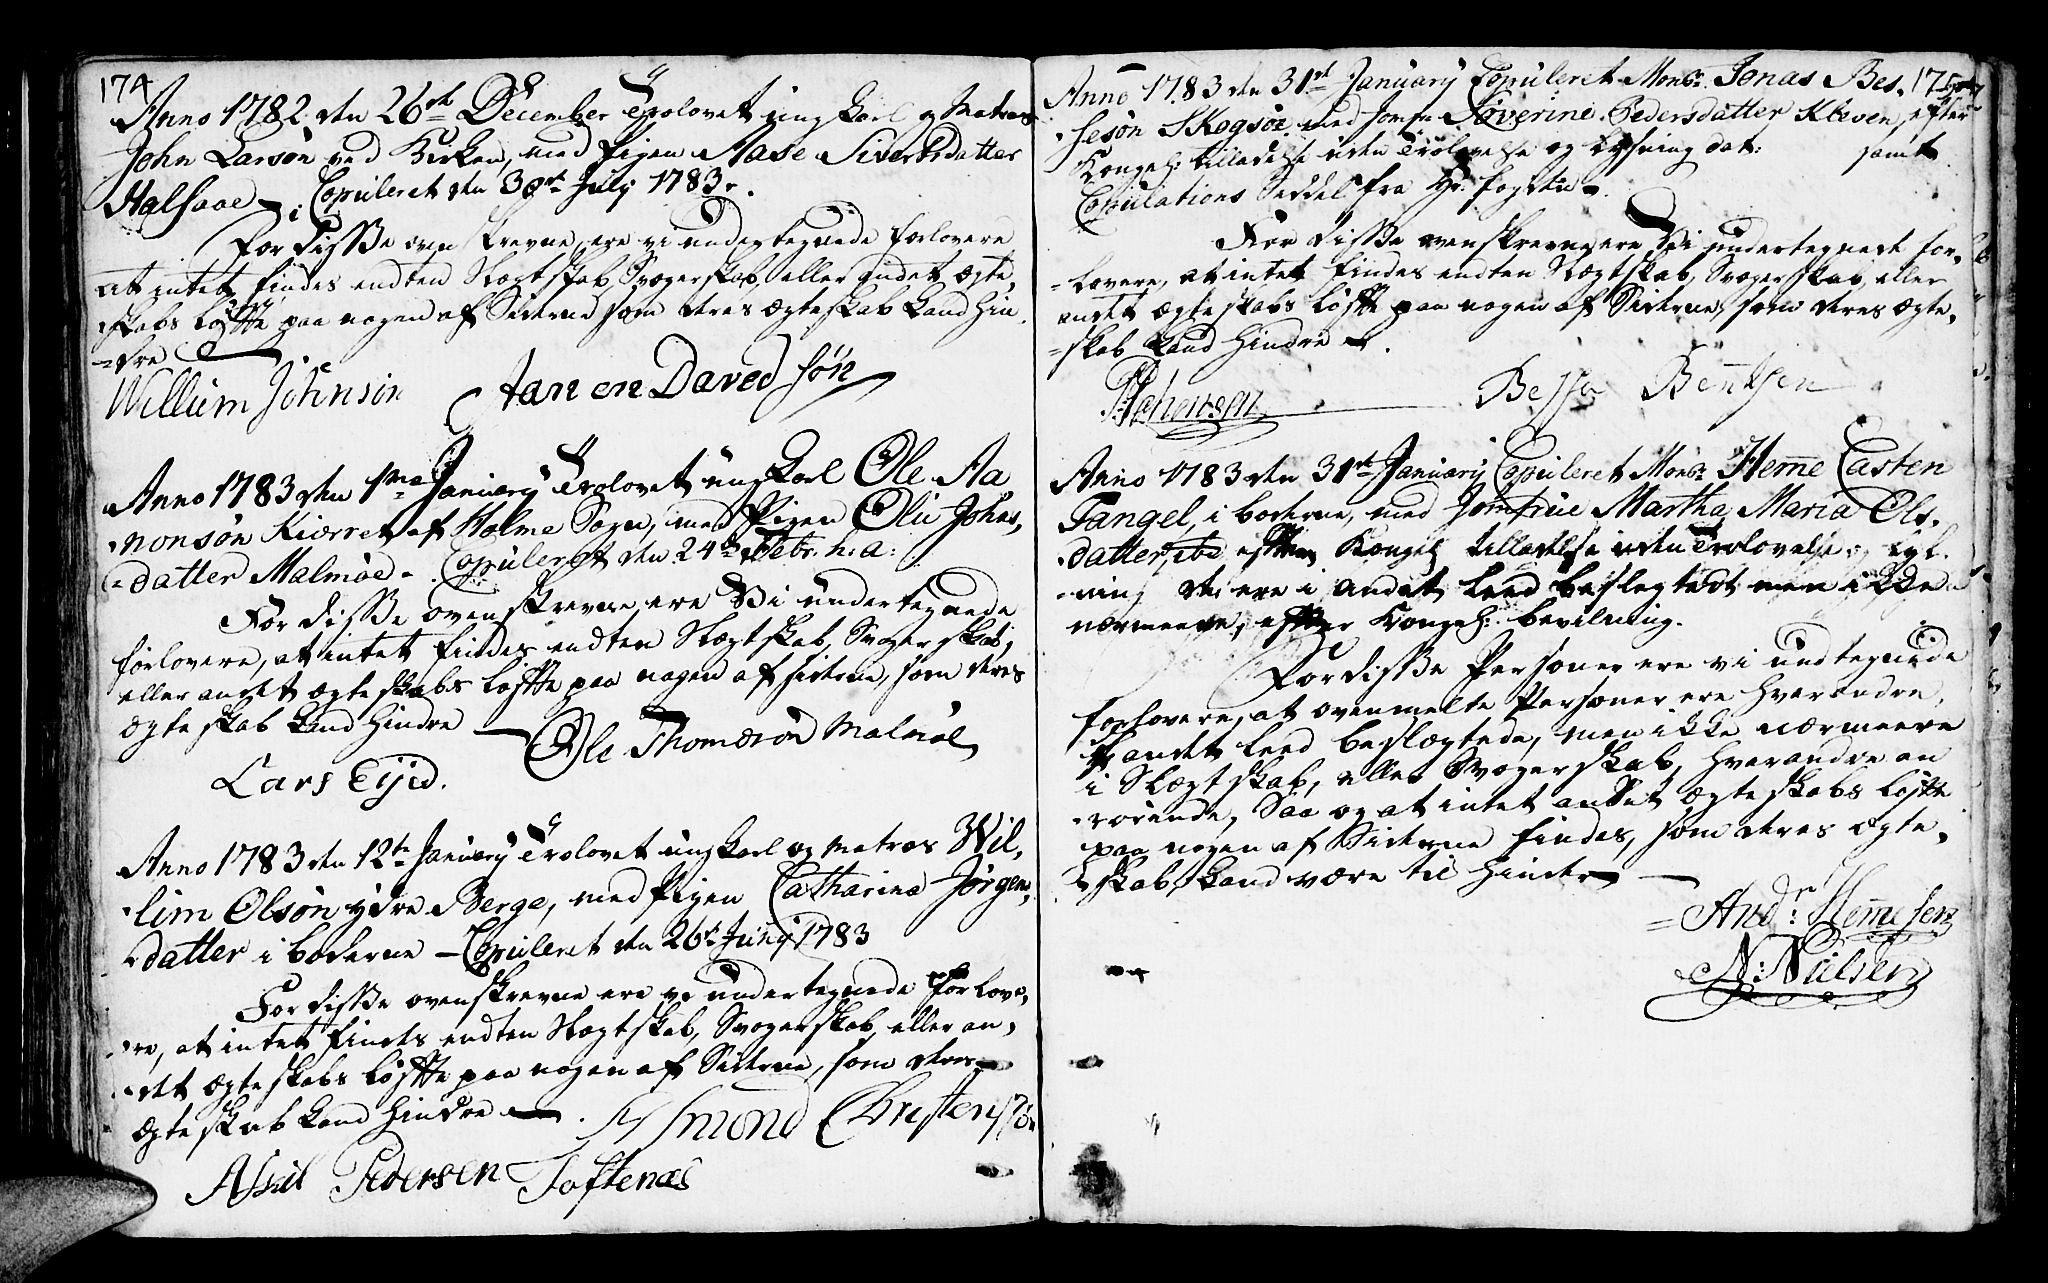 174
Anno 1782 den 26de December Trolovet ung Karl og Matros
John Larsøn ved Kirken, med Pigen Aase Sivertsdatter
Halsaae Copuleret den 30te July 1783.
For disse oven skrevne, ere vi undertegnede forlovere
at intet findes endten Slægtskab, Svogerskab eller andet ægte,
skabs løffte paa nogen af Siderne som deres ægteskab kand hin
=dre
Willum Johnsøn Janen Daved søn
Anno 1783 den 1ma January Trolovet ung Karl Ole Aa
nonsøn Kiørret af Holme Sogn, med Pigen Olu Johns,
=datter Malmøe - Copuleret den 24de Febr: h: a:
For disse ovenskrevne, ere Vi undertegnede
forlovere, at intet findes endten Slægtskab, Svogerskab,
eller andet ægteskabs løffte paa nogen af siderne, som deres
ægteskab kand hindre
Ole Thomesøn Malmøe
Lars Eyd.
Anno 1783 den 12te January Trolovet ung Karl og Matros Wil,
lim Olsøn ydre Berge, med Pigen Catharina Jørgens,
datter i boderne - Copuleret den 26de Juny 1783
For disse ovenskrevne ere vi undertegnede forlove,
re, at intet findes endten Slægtskab, Svogerskab, eller an,
det ægteskabs løffte paa nogen af Siderne, som deres
ægteskab kand hindre
Asmond Christensøn
Aschil Pedersen Toftenæs
175
Anno 1783 den 31te January Copuleret Monsr. Jonas Bes,
sesøn Skogsøe, med Jomfr. Søverine Pedersdatter Kleven, efter
Kongel: tilladelse uden Trolovelse og Lysning dat: samt
Copulations Seddel fra Hr. fogden
For disse ovenskrevne, ere Vi undertegnede for,
=lovere, at intet findes endten Slægtskab, Svogerskab, eller
andet ægteskabs løffte paa nogen af Siderne, som deres ægte,
=skab kand hindre
Besse Bentsen
Anno 1783 den 31te January Copuleret Monsr. Heme Casten
Tangel, i boderne, med Jomfrue Martha Maria Ols,
datter, ibd efter Kongel: tilladelse uden Trolovelse og lys,
ning de ere i andet Leed beslegtedt men ikke
nærmeere, efter Kongel: bevilning.
For disse Personer ere vi undtegnede
forlovere, at ovenmelte Personer ere hverandre
i andet Leed beslægtede, men ikke nærmeere
i Slægtskab, eller Svogerskab, hverandre an
rørende, Saa og at intet andet ægteskabs løffte
paa nogen af Siderne findes, som deres ægte,
skab, kand være til hinder
And: Hemesen
N: Nielsen